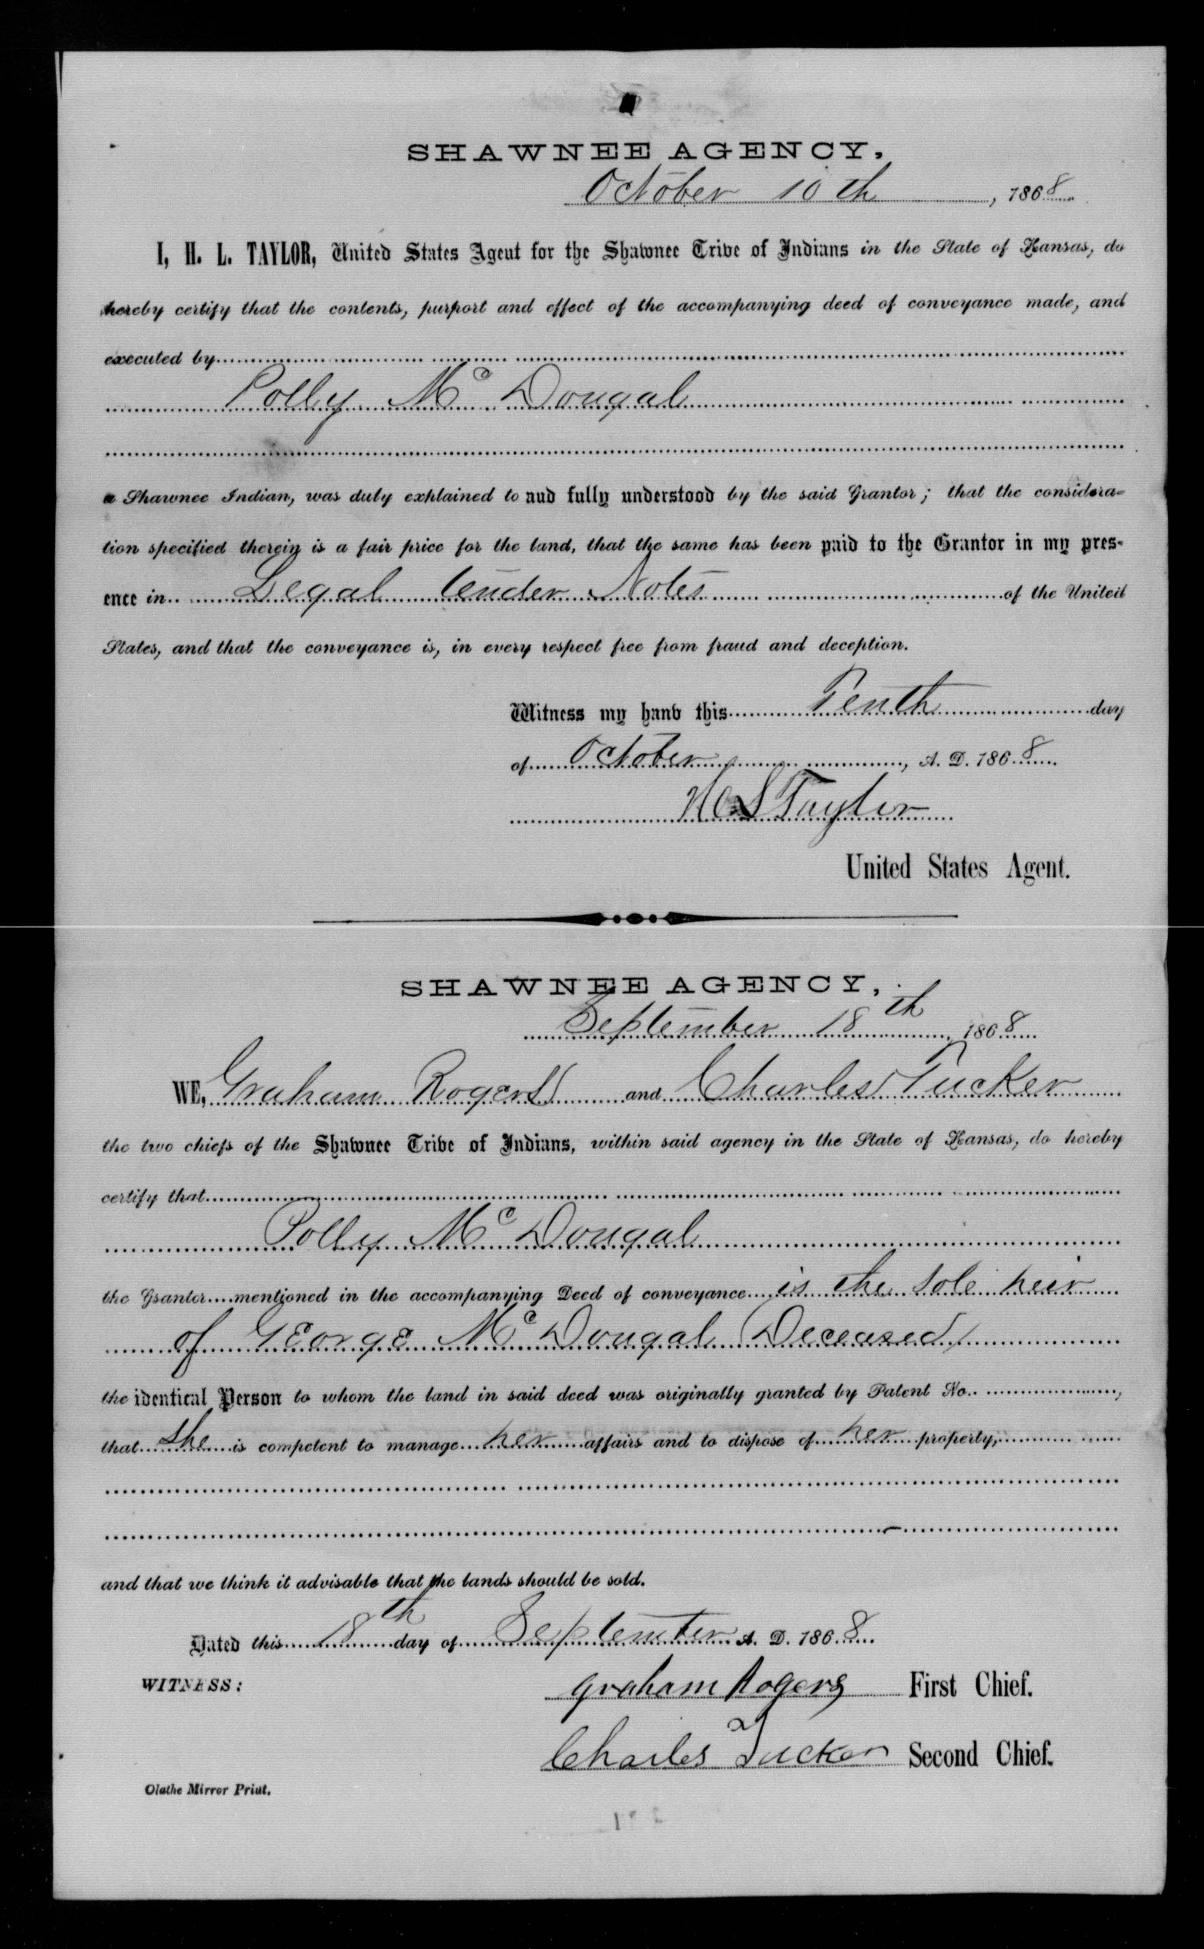 SHAWNEE AGENCY,
October 10th, 1868
I, H. L. TAYLOR, United States Agent for the Shawnee Tribe of Indians in the State of Kansas, do
hereby certify that the contents, purport and effect of the accompanying deed of conveyance made, and
executed by
Polly Mc Dougal
a Shawnee Indian, was duly explained to and fully understood by the said Grantor; that the considera-
tion specified therein is a fair price for the land, that the same has been paid to the Grantor in my pres-
ence in Legal tender Notes of the United
States, and that the conveyance is, in every respect free from fraud and deception.
Witness my hand this Tenth day
of October, A. D. 1868
H L Taylor
United States Agent.
SHAWNEE AGENCY,
September 18th, 1868
WE, Graham Rogers and Charles Tucker
the two chiefs of the Shawnee Tribe of Indians, within said agency in the State of Kansas, do hereby
certify that
Polly Mc Dougal
the Grantor mentioned in the accompanying Deed of conveyance is the sole heir
of George Mc Dougal (Deceased)
the identical Person to whom the land in said deed was originally granted by Patent No.
that she is competent to manage her affairs and to dispose of her property,
and that we think it advisable that the lands should be sold.
Dated this 18th day of September A. D. 1868
WITNESS:
Graham Rogers First Chief.
Charles Tucker Second Chief.
Olathe Mirror Print.